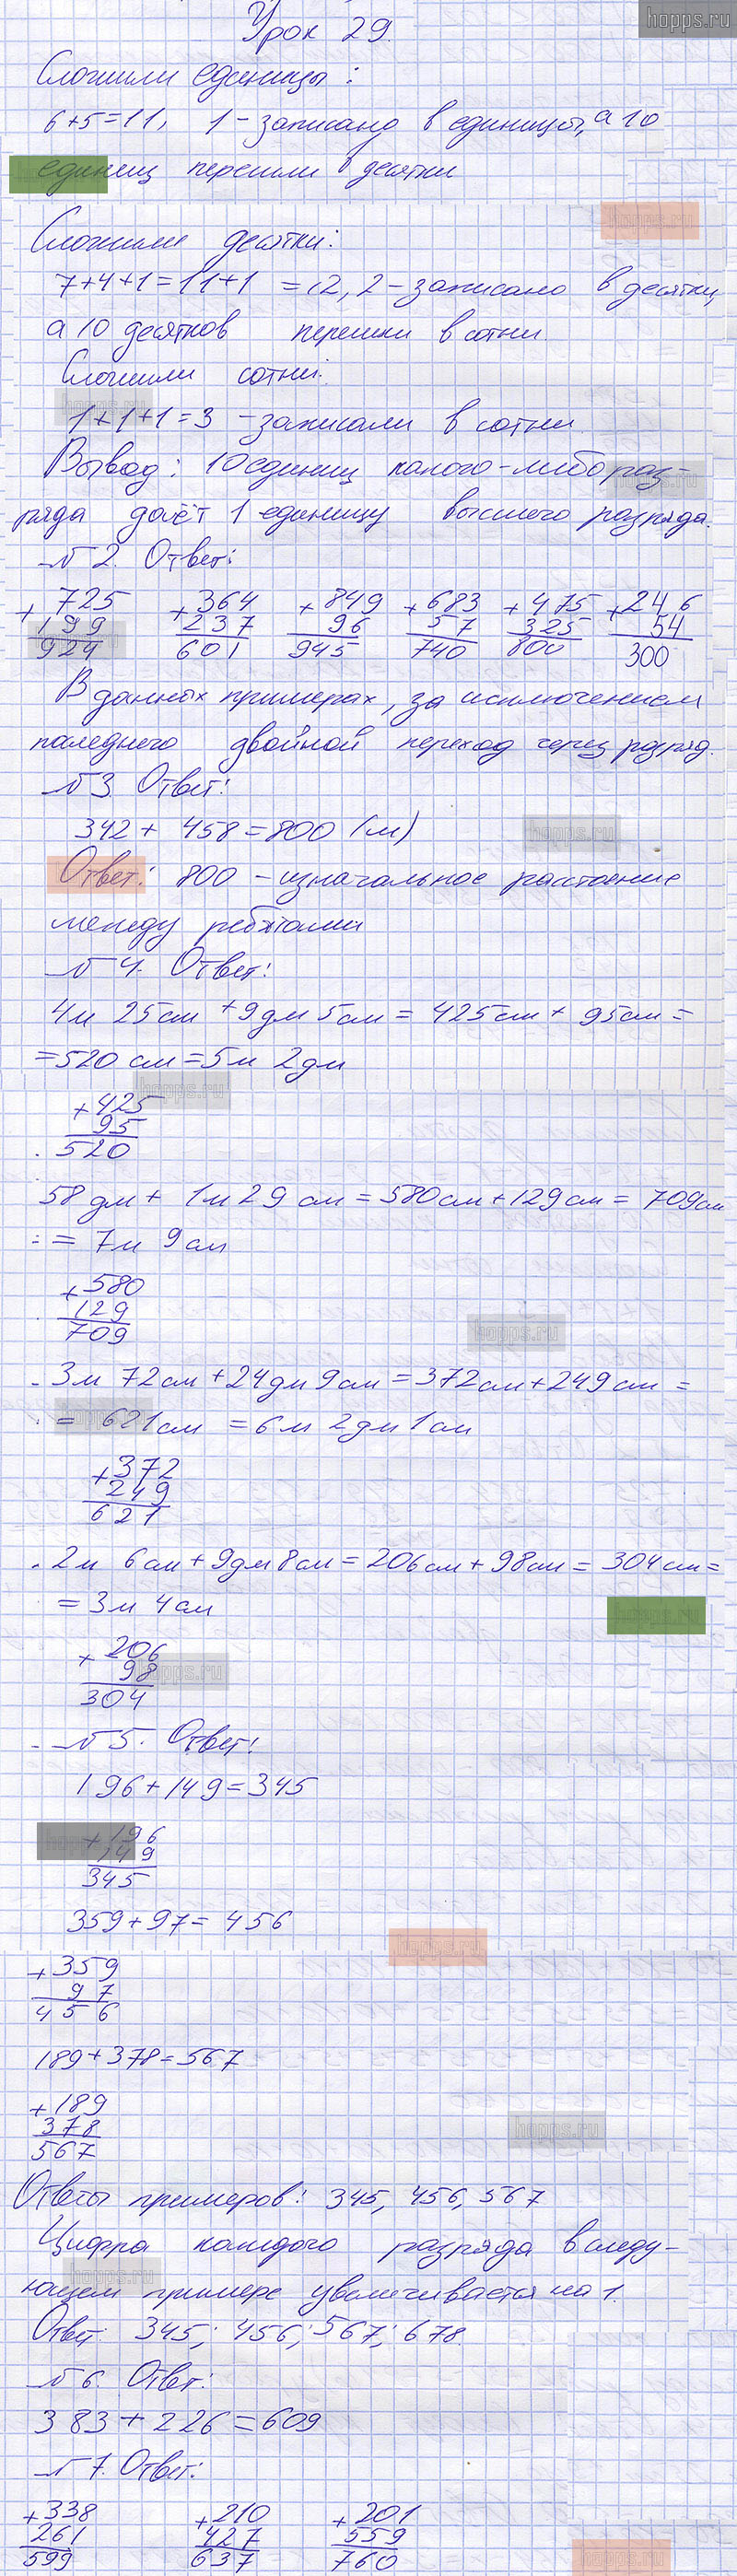 hopps.ru
Урок 29.
Сложили единицы:
6+5=11, 1 - записано в единицы, а 10
единиц перешли в десятки
hopps.ru
Сложили десятки:
7+4+1=11+1 =12, 2 - записано в десятки,
а 10 десятков перешли в сотни.
Сложили сотни:
hopps.ru
1+1+1=3 - записали в сотни.
Вывод: 10 единиц какого-либо раз-
ряда даёт 1 единицу высшего разряда.
№ 2. Ответ:
+725 +364 +849 +683 +475 +246
199 237 96 57 325 54
924 601 945 740 800 300
В данных примерах, за исключением
последнего двойной переход через разряд.
№ 3. Ответ:
342 + 458 = 800 (м)
hopps.ru
Ответ: 800 - изначальное расстояние
между ребятами
№ 4. Ответ:
4м 25см + 9дм 5см = 425см + 95см =
= 520 см = 5м 2дм
hopps.ru
+425
95
520
58 дм + 1м 29 см = 580см + 129см = 709см
= 7м 9см
+580
129
709
hopps.ru
3м 72см + 24дм 9см = 372см + 249см =
= 621см = 6м 2дм 1см
+372
249
621
2м 6см + 9дм 8см = 206см + 98см = 304см =
= 3м 4см
+206
98
304
hopps.ru
№ 5. Ответ:
196 + 149 = 345
+196
149
345
359 + 97 = 456
hopps.ru
+359
97
456
189 + 378 = 567
+189
378
567
hopps.ru
Ответы примеров: 345, 456, 567
Цифра каждого разряда в следу-
ющем примере увеличивается на 1.
hopps.ru
Ответ: 345; 456; 567; 678.
№ 6. Ответ:
383 + 226 = 609
№ 7. Ответ:
+338 +210 +201
261 427 559
599 637 760
hopps.ru